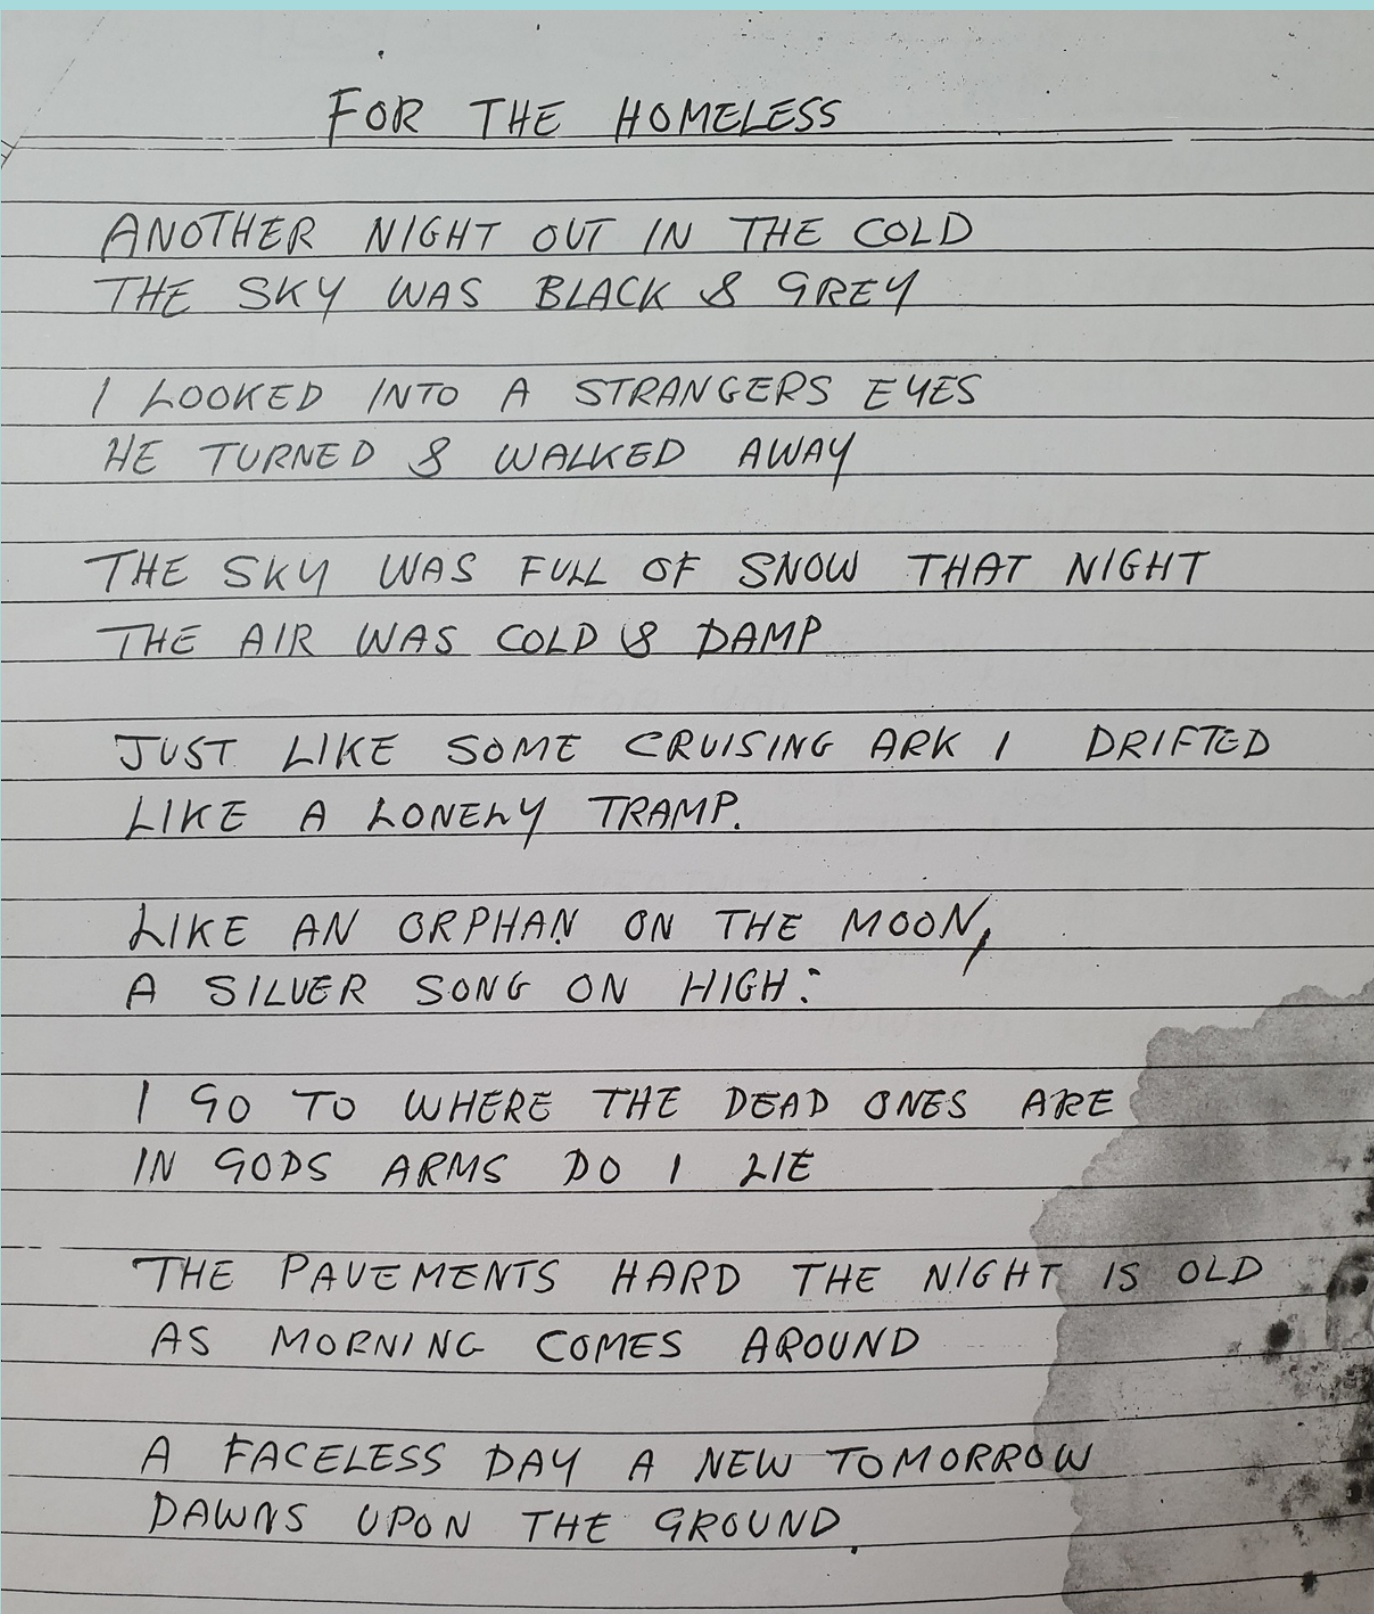 FOR THE HOMELESS
ANOTHER NIGHT OUT IN THE COLD
THE SKY WAS BLACK & GREY
I LOOKED INTO A STRANGERS EYES
HE TURNED & WALKED AWAY
THE SKY WAS FULL OF SNOW THAT NIGHT
THE AIR WAS COLD & DAMP
JUST LIKE SOME CRUISING ARK I DRIFTED
LIKE A LONELY TRAMP.
LIKE AN ORPHAN ON THE MOON,
A SILVER SONG ON HIGH:
I GO TO WHERE THE DEAD ONES ARE
IN GODS ARMS DO I LIE
THE PAVEMENTS HARD THE NIGHT IS OLD
AS MORNING COMES AROUND
A FACELESS DAY A NEW TOMORROW
DAWNS UPON THE GROUND.